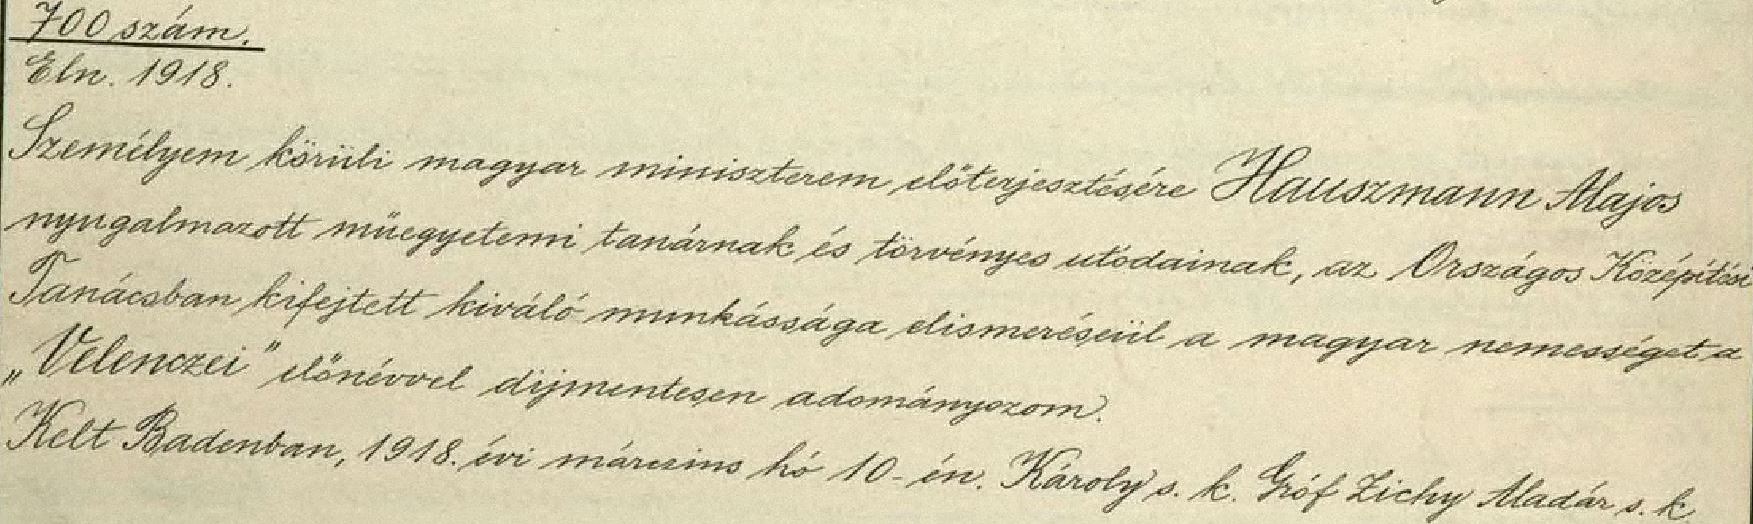 700 szám.
Eln. 1918.
Személyem körüli magyar miniszterem előterjesztésére Hauszmann Alajos
nyugalmazott műegyetemi tanárnak és törvényes utódainak, az Országos Középítési
Tanácsban kifejtett kiváló munkássága elismeréséül a magyar nemességet a
„Velenczei" előnévvel díjmentesen adományozom.
Kelt Badenban, 1918. évi márczius hó 10-én. Károly s. k. Gróf Zichy Aladár s. k